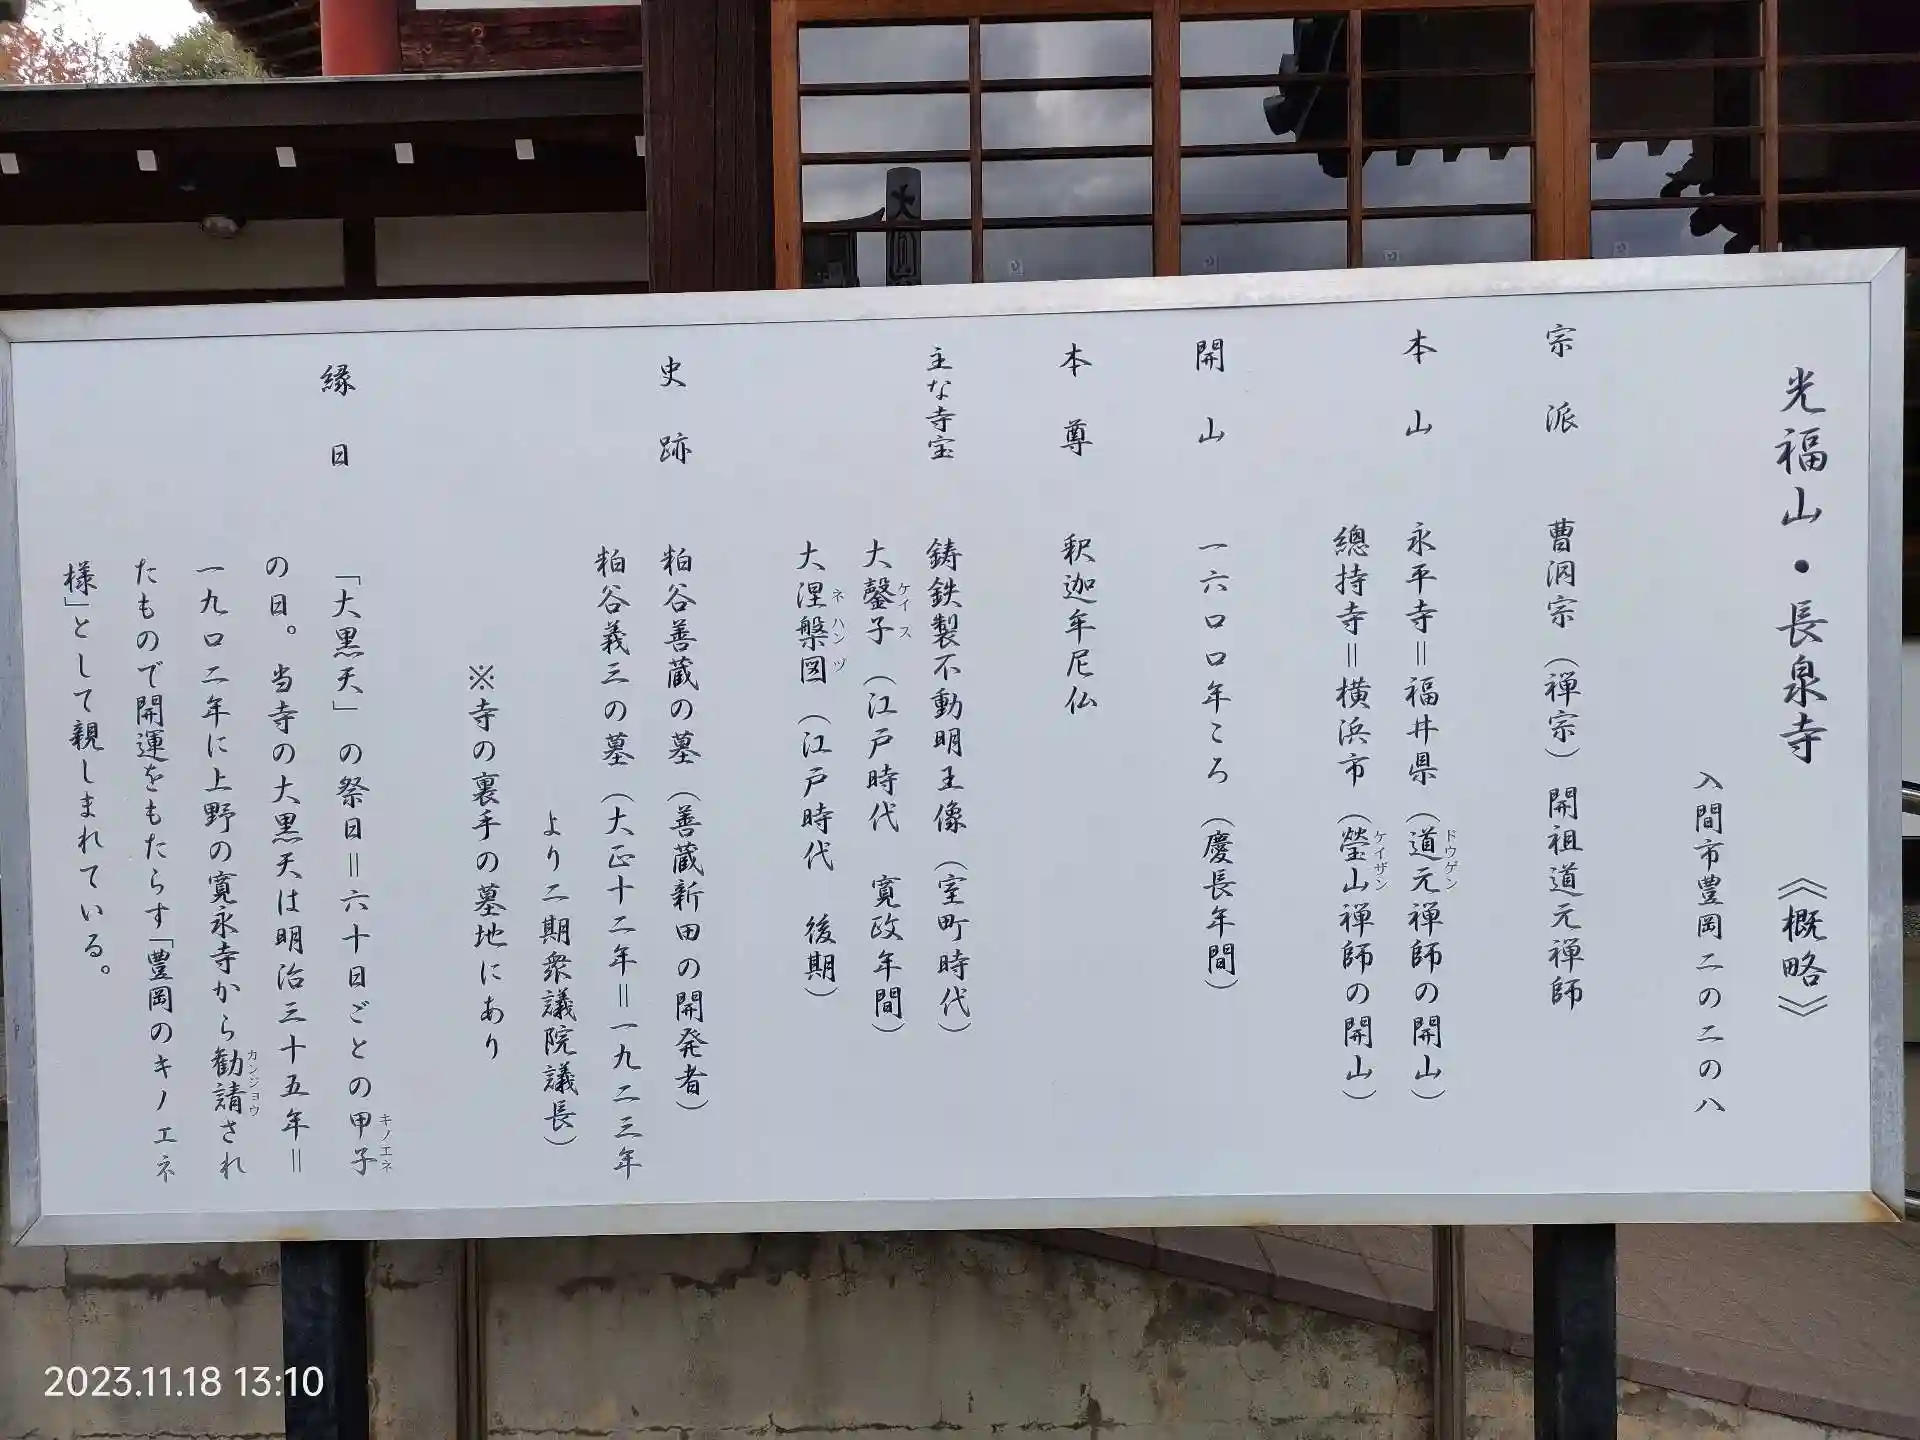 光福山・長泉寺 《概略》
入間市豊岡二の二の八
宗派 曹洞宗(禅宗)開祖道元禅師
本山 永平寺＝福井県(道元禅師の開山)
ドウゲン
總持寺＝横浜市(瑩山禅師の開山)
ケイザン
開山 一六〇〇年ころ(慶長年間)
本尊 釈迦牟尼仏
主な寺宝 鋳鉄製不動明王像(室町時代)
大鏧子(江戸時代 寛政年間)
ケイス
大涅槃図(江戸時代 後期)
ネハンヅ
史跡 粕谷善蔵の墓(善蔵新田の開発者)
粕谷義三の墓(大正十二年＝一九二三年
より二期衆議院議長)
※寺の裏手の墓地にあり
縁日 「大黒天」の祭日＝六十日ごとの甲子
キノエネ
の日。当寺の大黒天は明治三十五年＝
一九〇二年に上野の寛永寺から勧請され
カンジョウ
たもので開運をもたらす「豊岡のキノエネ
様」として親しまれている。
2023.11.18 13:10